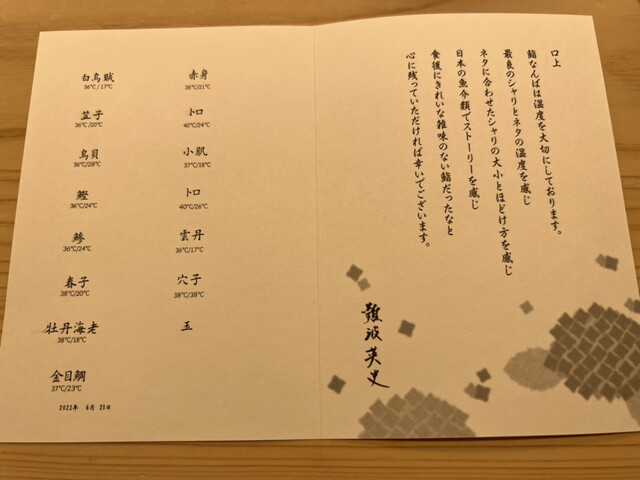 口上
鮨なんばは温度を大切にしております。
最良のシャリとネタの温度を感じ
ネタに合わせたシャリの大小とほどけ方を感じ
日本の魚介類でストーリーを感じ
食後にきれいな雑味のない鮨だったなと
心に残っていただければ幸いでございます。
難波英史
白烏賊
36℃/17℃
笠子
36℃/20℃
鳥貝
36℃/28℃
鰹
36℃/24℃
鯵
36℃/24℃
春子
38℃/20℃
牡丹海老
38℃/18℃
金目鯛
37℃/23℃
2022年 6月 23日
赤身
38℃/21℃
トロ
40℃/24℃
小肌
37℃/18℃
トロ
40℃/26℃
雲丹
36℃/17℃
穴子
38℃/38℃
玉